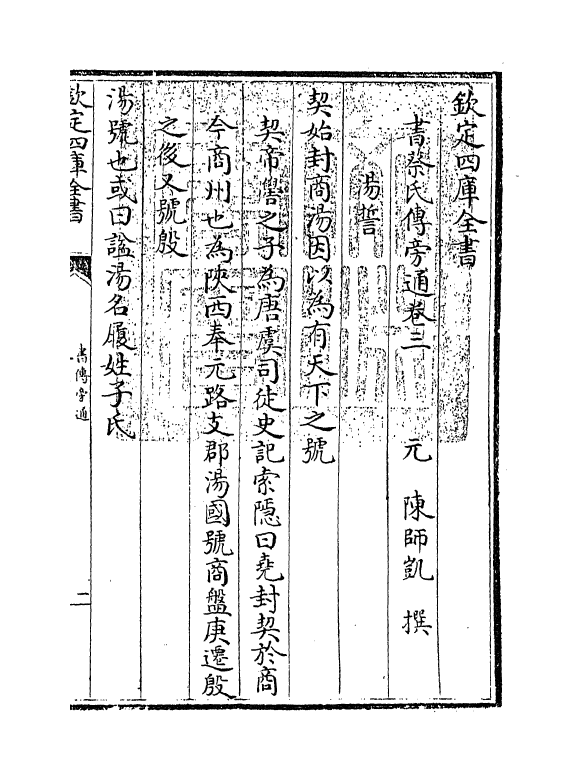 欽定四庫全書
書蔡氏傳旁通卷三　元　陳師凱　撰
湯誓
契始封商湯因以為有天下之號
契帝嚳之子為唐虞司徒史記索隱曰堯封契於商
今商州也為陜西奉元路支郡湯國號商盤庚遷殷
之後又號殷
湯號也或曰諡湯名履姓子氏
欽定四庫全書
書傳旁通
二